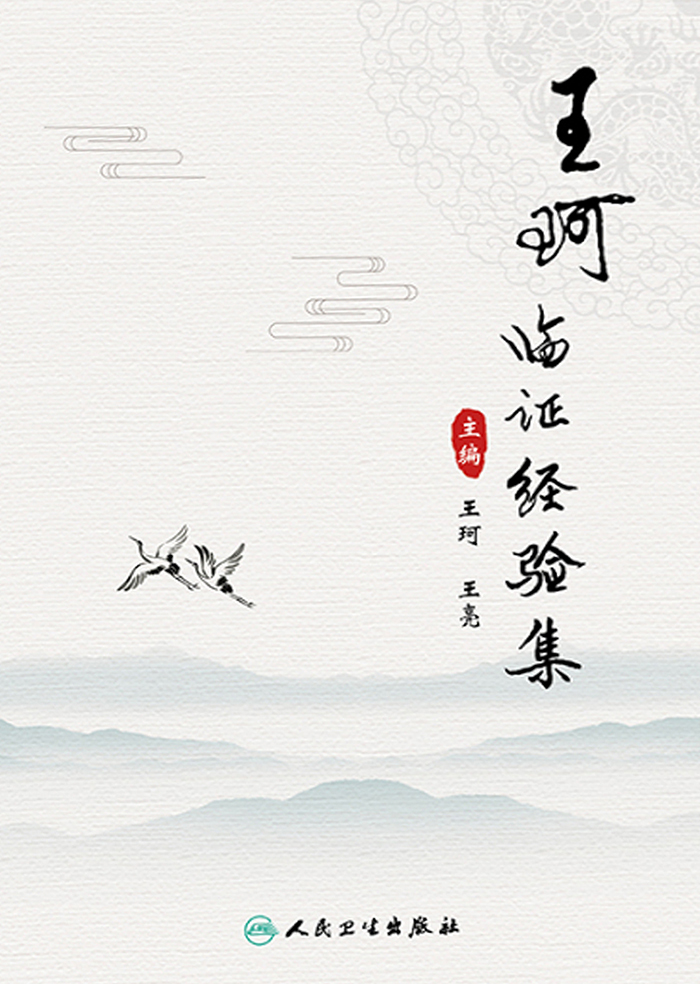 王珂临证经验集
主编
王珂 王亮
人民卫生出版社